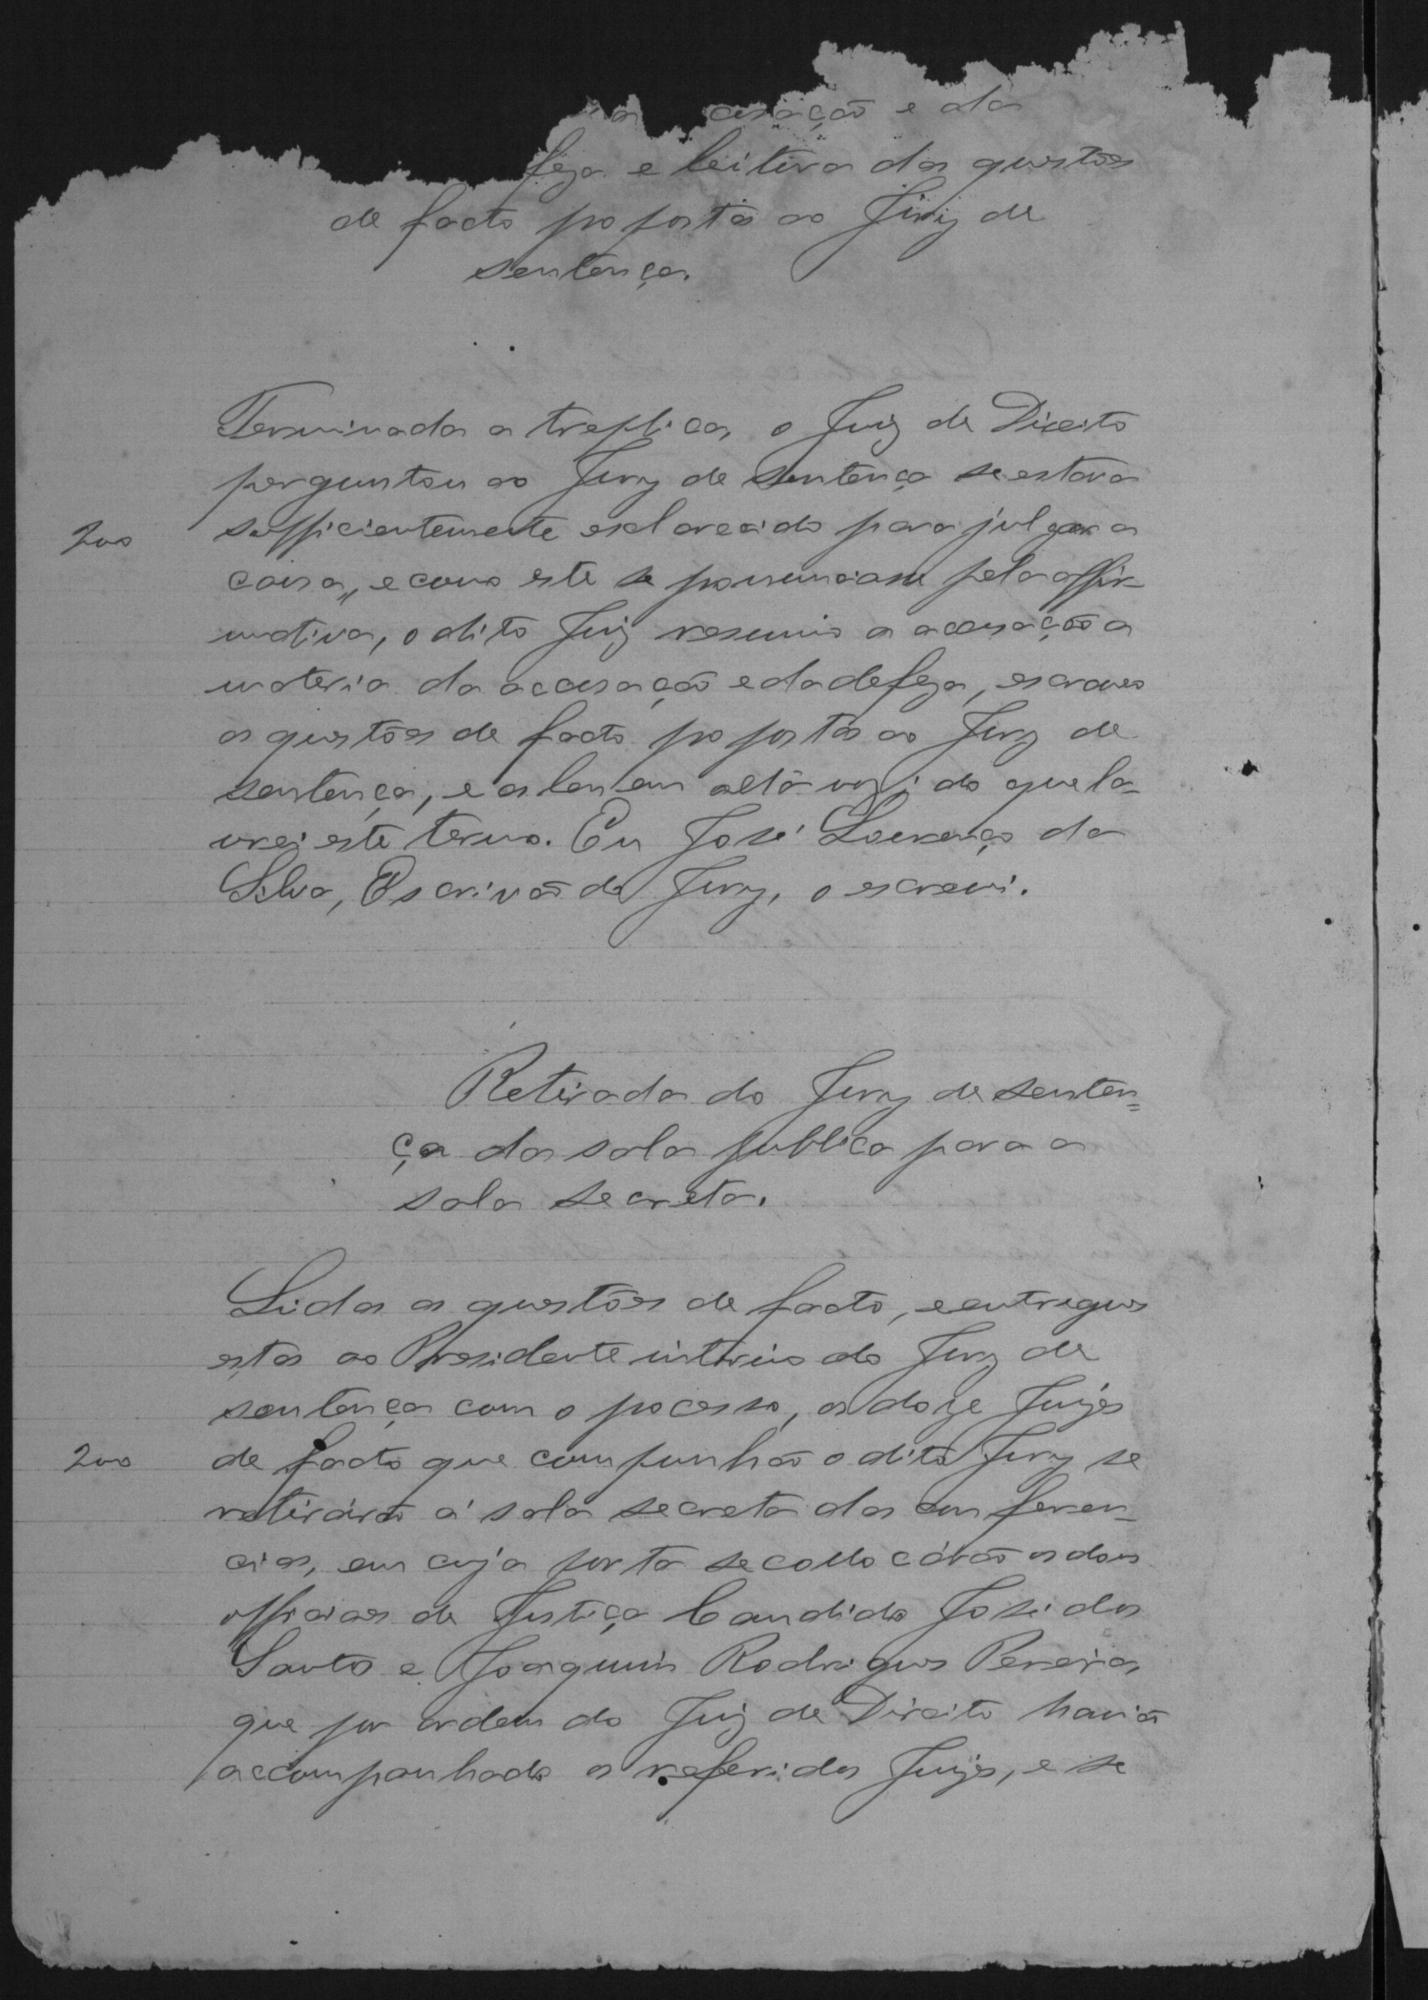 da accusação e da
feza e leitura das questões
de facto propostas ao Jury de
sentença.
Terminada a treplica, o Juiz de Direito
perguntou ao Jury de sentença se estava
200
sufficientemente esclarecido para julgar a
causa, e como este se pronunciasse pela affir-
mativa, o dito Juiz resumio a accusação a
materia da accusação e da defeza, escreveo
as questões de facto propostas ao Jury de
sentença, e as leu em alta voz; do que la-
vrei este termo. Eu José Lourenço da
Silva, Escrivão do Jury, o escrevi.
Retirada do Jury de senten=
ça da sala publica para a
sala secreta.
Lidas as questões de facto, e entregues
estas ao Presidente interino do Jury de
sentença com o pocesso, os doze Juizes
200
de facto que compunhão o dito Jury se
retirárão á sala secreta das conferen-
cias, em cuja porta se collocárão os dous
officiaes de Justiça Candido José dos
Santos e Joaquim Rodrigues Pereira,
que por ordem do Juiz de Direito havião
accompanhado os referidos Juizes, e se